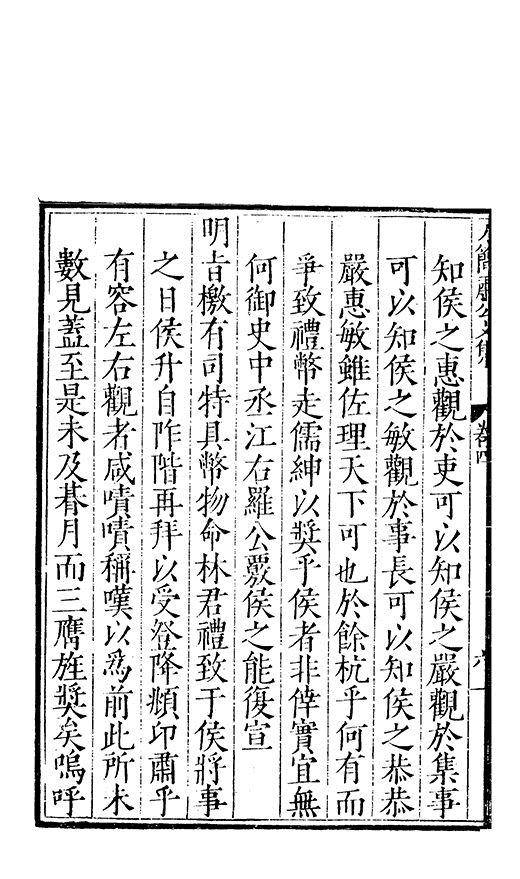 卷四
六
知侯之惠觀於吏可以知侯之嚴觀於集事
可以知侯之敏觀於事長可以知侯之恭恭
嚴惠敏雖佐理天下可也於餘杭乎何有而
爭致禮幣走儒紳以奬乎侯者非倖實宜無
何御史中丞江右羅公覈侯之能復宣
明旨檄有司特具幣物命林君禮致于侯將事
之日侯升自阼階再拜以受登降頫卬肅乎
有容左右觀者咸嘖嘖稱嘆以爲前此所未
數見蓋至是未及朞月而三膺旌奬矣嗚呼